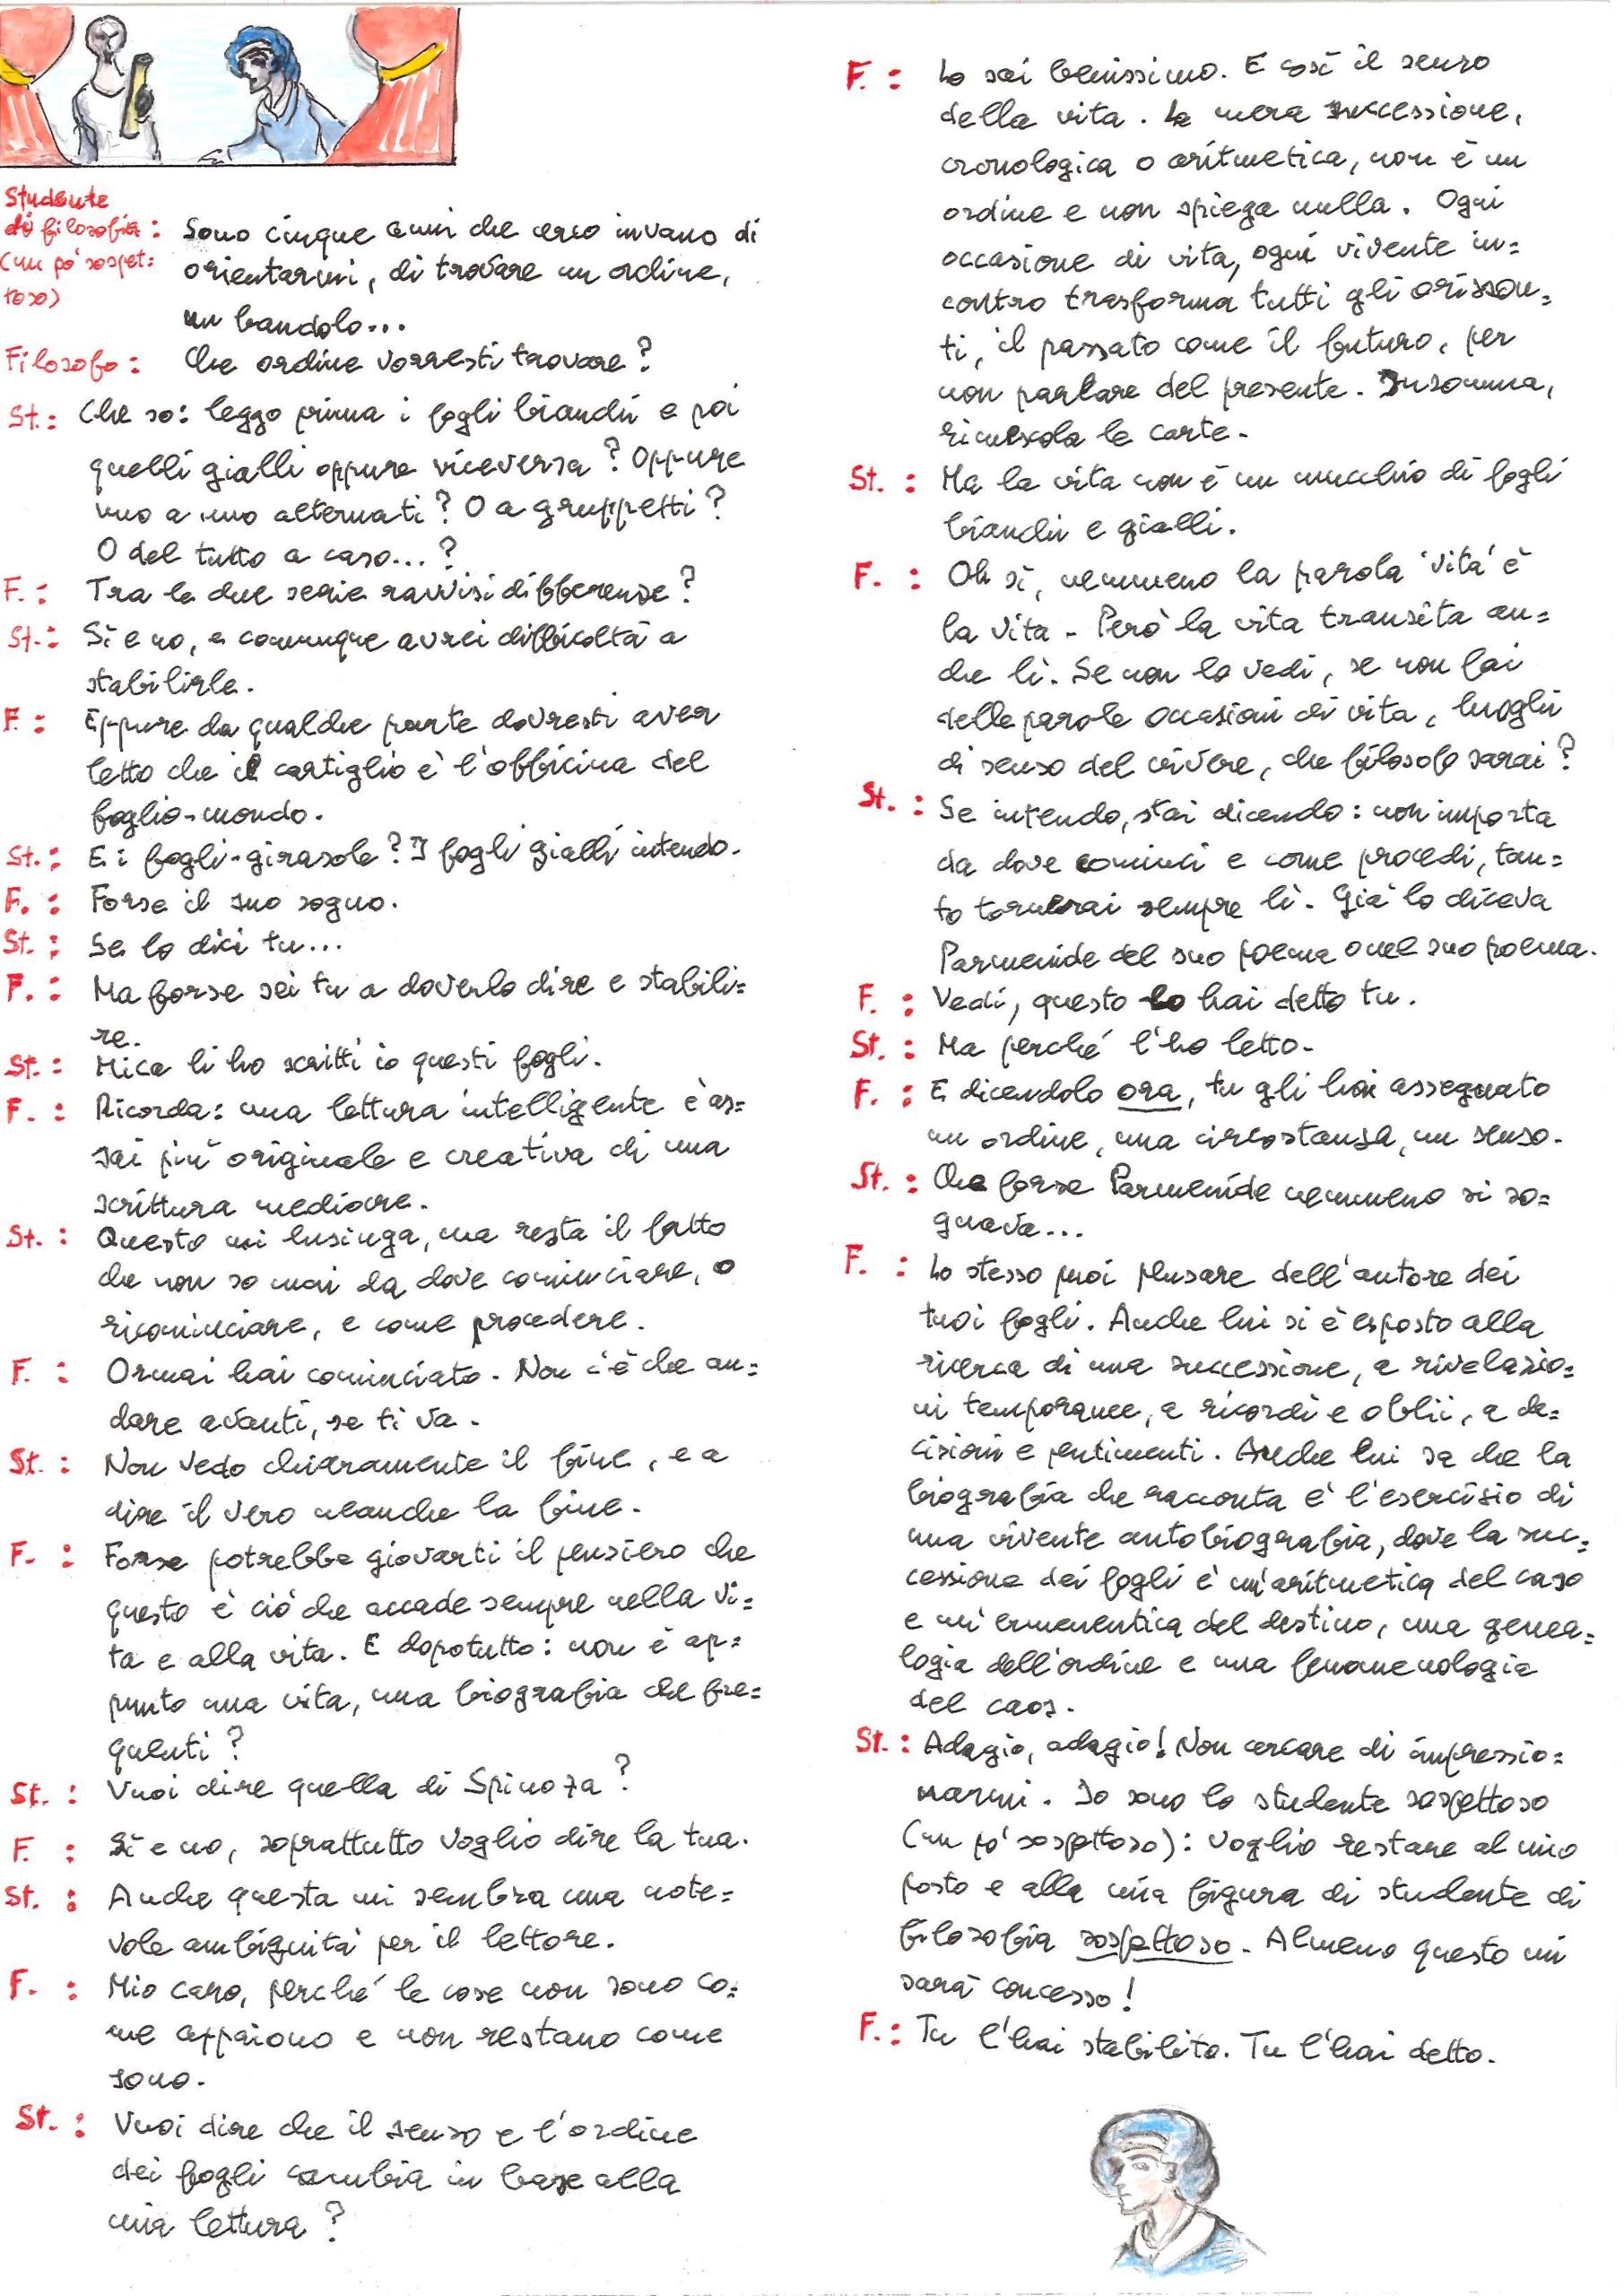 Studente
di filosofia: Sono cinque anni che cerco invano di
(un po' sospet= orientarmi, di trovare un ordine,
toso) un bandolo...
Filosofo: Che ordine vorresti trovare?
St.: Che so: leggo prima i fogli bianchi e poi
quelli gialli oppure viceversa? Oppure
uno a uno alternati? O a gruppetti?
O del tutto a caso...?
F.: Tra le due serie ravvisi differenze?
St.: Sì e no, e comunque avrei difficoltà a
stabilirle.
F.: Eppure da qualche parte dovresti aver
letto che il cartiglio è l'officina del
foglio-mondo.
St.: E i fogli-girasole? I fogli gialli intendo.
F.: Forse il suo sogno.
St.: Se lo dici tu...
F.: Ma forse sei tu a doverlo dire e stabili=
re.
St.: Mica li ho scritti io questi fogli.
F.: Ricorda: una lettura intelligente è as=
sai più originale e creativa di una
scrittura mediocre.
St.: Questo mi lusinga, ma resta il fatto
che non so mai da dove cominciare, o
ricominciare, e come procedere.
F.: Ormai hai cominciato. Non c'è che an=
dare avanti, se ti va.
St.: Non vedo chiaramente il fine, e a
dire il vero neanche la fine.
F.: Forse potrebbe giovarti il pensiero che
questo è ciò che accade sempre nella vi=
ta e alla vita. E dopotutto: non è ap=
punto una vita, una biografia che fre=
quenti?
St.: Vuoi dire quella di Spinoza?
F.: Sì e no, soprattutto voglio dire la tua.
St.: Anche questa mi sembra una note=
vole ambiguità per il lettore.
F.: Mio caro, perché le cose non sono co=
me appaiono e non restano come
sono.
St.: Vuoi dire che il senso e l'ordine
dei fogli cambia in base alla
mia lettura?
F.: Lo sai benissimo. E così il senso
della vita. La mera successione,
cronologica o aritmetica, non è un
ordine e non spiega nulla. Ogni
occasione di vita, ogni vivente in=
contro trasforma tutti gli orizzon=
ti, il passato come il futuro, per
non parlare del presente. Insomma,
rimescola le carte.
St.: Ma la vita non è un mucchio di fogli
bianchi e gialli.
F.: Oh sì, nemmeno la parola 'vita' è
la vita. Però la vita transita an=
che lì. Se non lo vedi, se non fai
delle parole occasioni di vita, luoghi
di senso del vivere, che filosofo sarai?
St.: Se intendo, stai dicendo: non importa
da dove cominci e come procedi, tan=
to tornerai sempre lì. Già lo diceva
Parmenide del suo poema o nel suo poema.
F.: Vedi, questo lo hai detto tu.
St.: Ma perché l'ho letto.
F.: E dicendolo ora, tu gli hai assegnato
un ordine, una circostanza, un senso.
St.: Che forse Parmenide nemmeno si so=
gnava...
F.: Lo stesso puoi pensare dell'autore dei
tuoi fogli. Anche lui si è esposto alla
ricerca di una successione, a rivelazio=
ni temporanee, a ricordi e oblii, a de=
cisioni e pentimenti. Anche lui sa che la
biografia che racconta è l'esercizio di
una vivente autobiografia, dove la suc=
cessione dei fogli è un'aritmetica del caso
e un'ermeneutica del destino, una genea=
logia dell'ordine e una fenomenologia
del caos.
St.: Adagio, adagio! Non cercare di impressio=
narmi. Io sono lo studente sospettoso
(un po' sospettoso): voglio restare al mio
posto e alla mia figura di studente di
filosofia sospettoso. Almeno questo mi
sarà concesso!
F.: Tu l'hai stabilito. Tu l'hai detto.